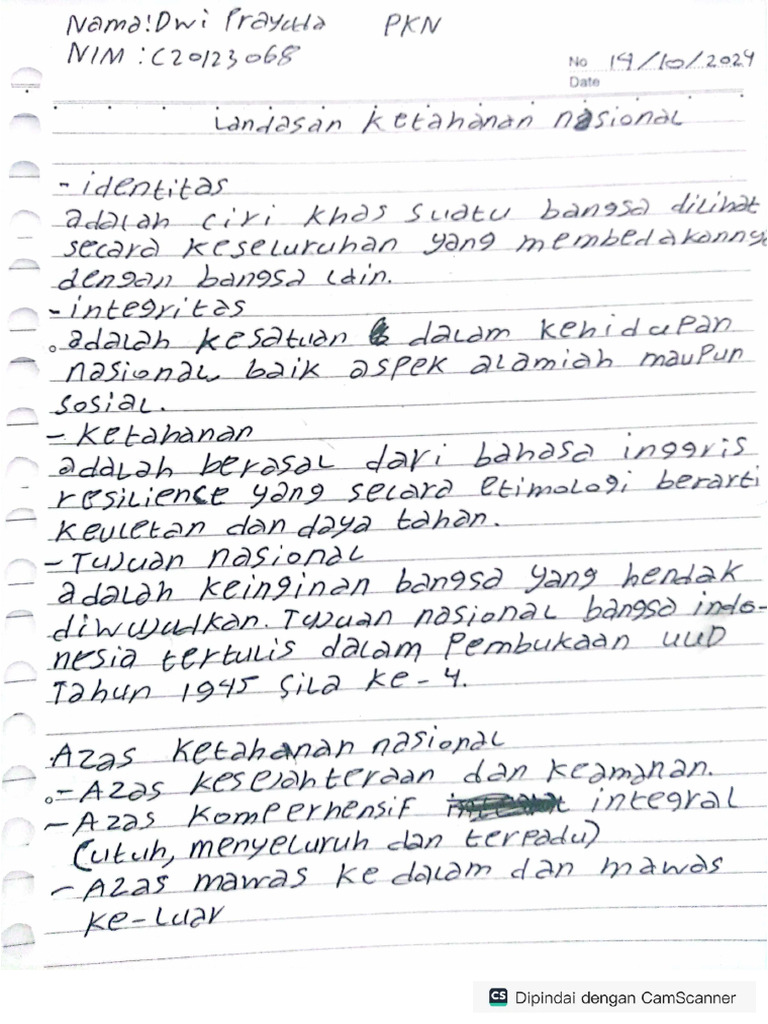 Nama: Dwi Prayuda PKN
NIM : C20123068
No 14/10/2024
Date
Landasan ketahanan nasional
- identitas
adalah ciri khas suatu bangsa dilihat
secara keseluruhan yang membedakannya
dengan bangsa lain.
- integritas
adalah kesatuan dalam kehidupan
nasional, baik aspek alamiah maupun
sosial.
- Ketahanan
adalah berasal dari bahasa inggris
resilience yang secara etimologi berarti
keuletan dan daya tahan.
- Tujuan nasional
adalah keinginan bangsa yang hendak
diwujudkan. Tujuan nasional bangsa indo-
nesia tertulis dalam Pembukaan UUD
Tahun 1945 Sila ke-4.
Azas ketahanan nasional
- Azas kesejahteraan dan keamanan.
- Azas komperhensif integral
(utuh, menyeluruh dan terpadu)
- Azas mawas ke dalam dan mawas
ke-luar
CS Dipindai dengan CamScanner